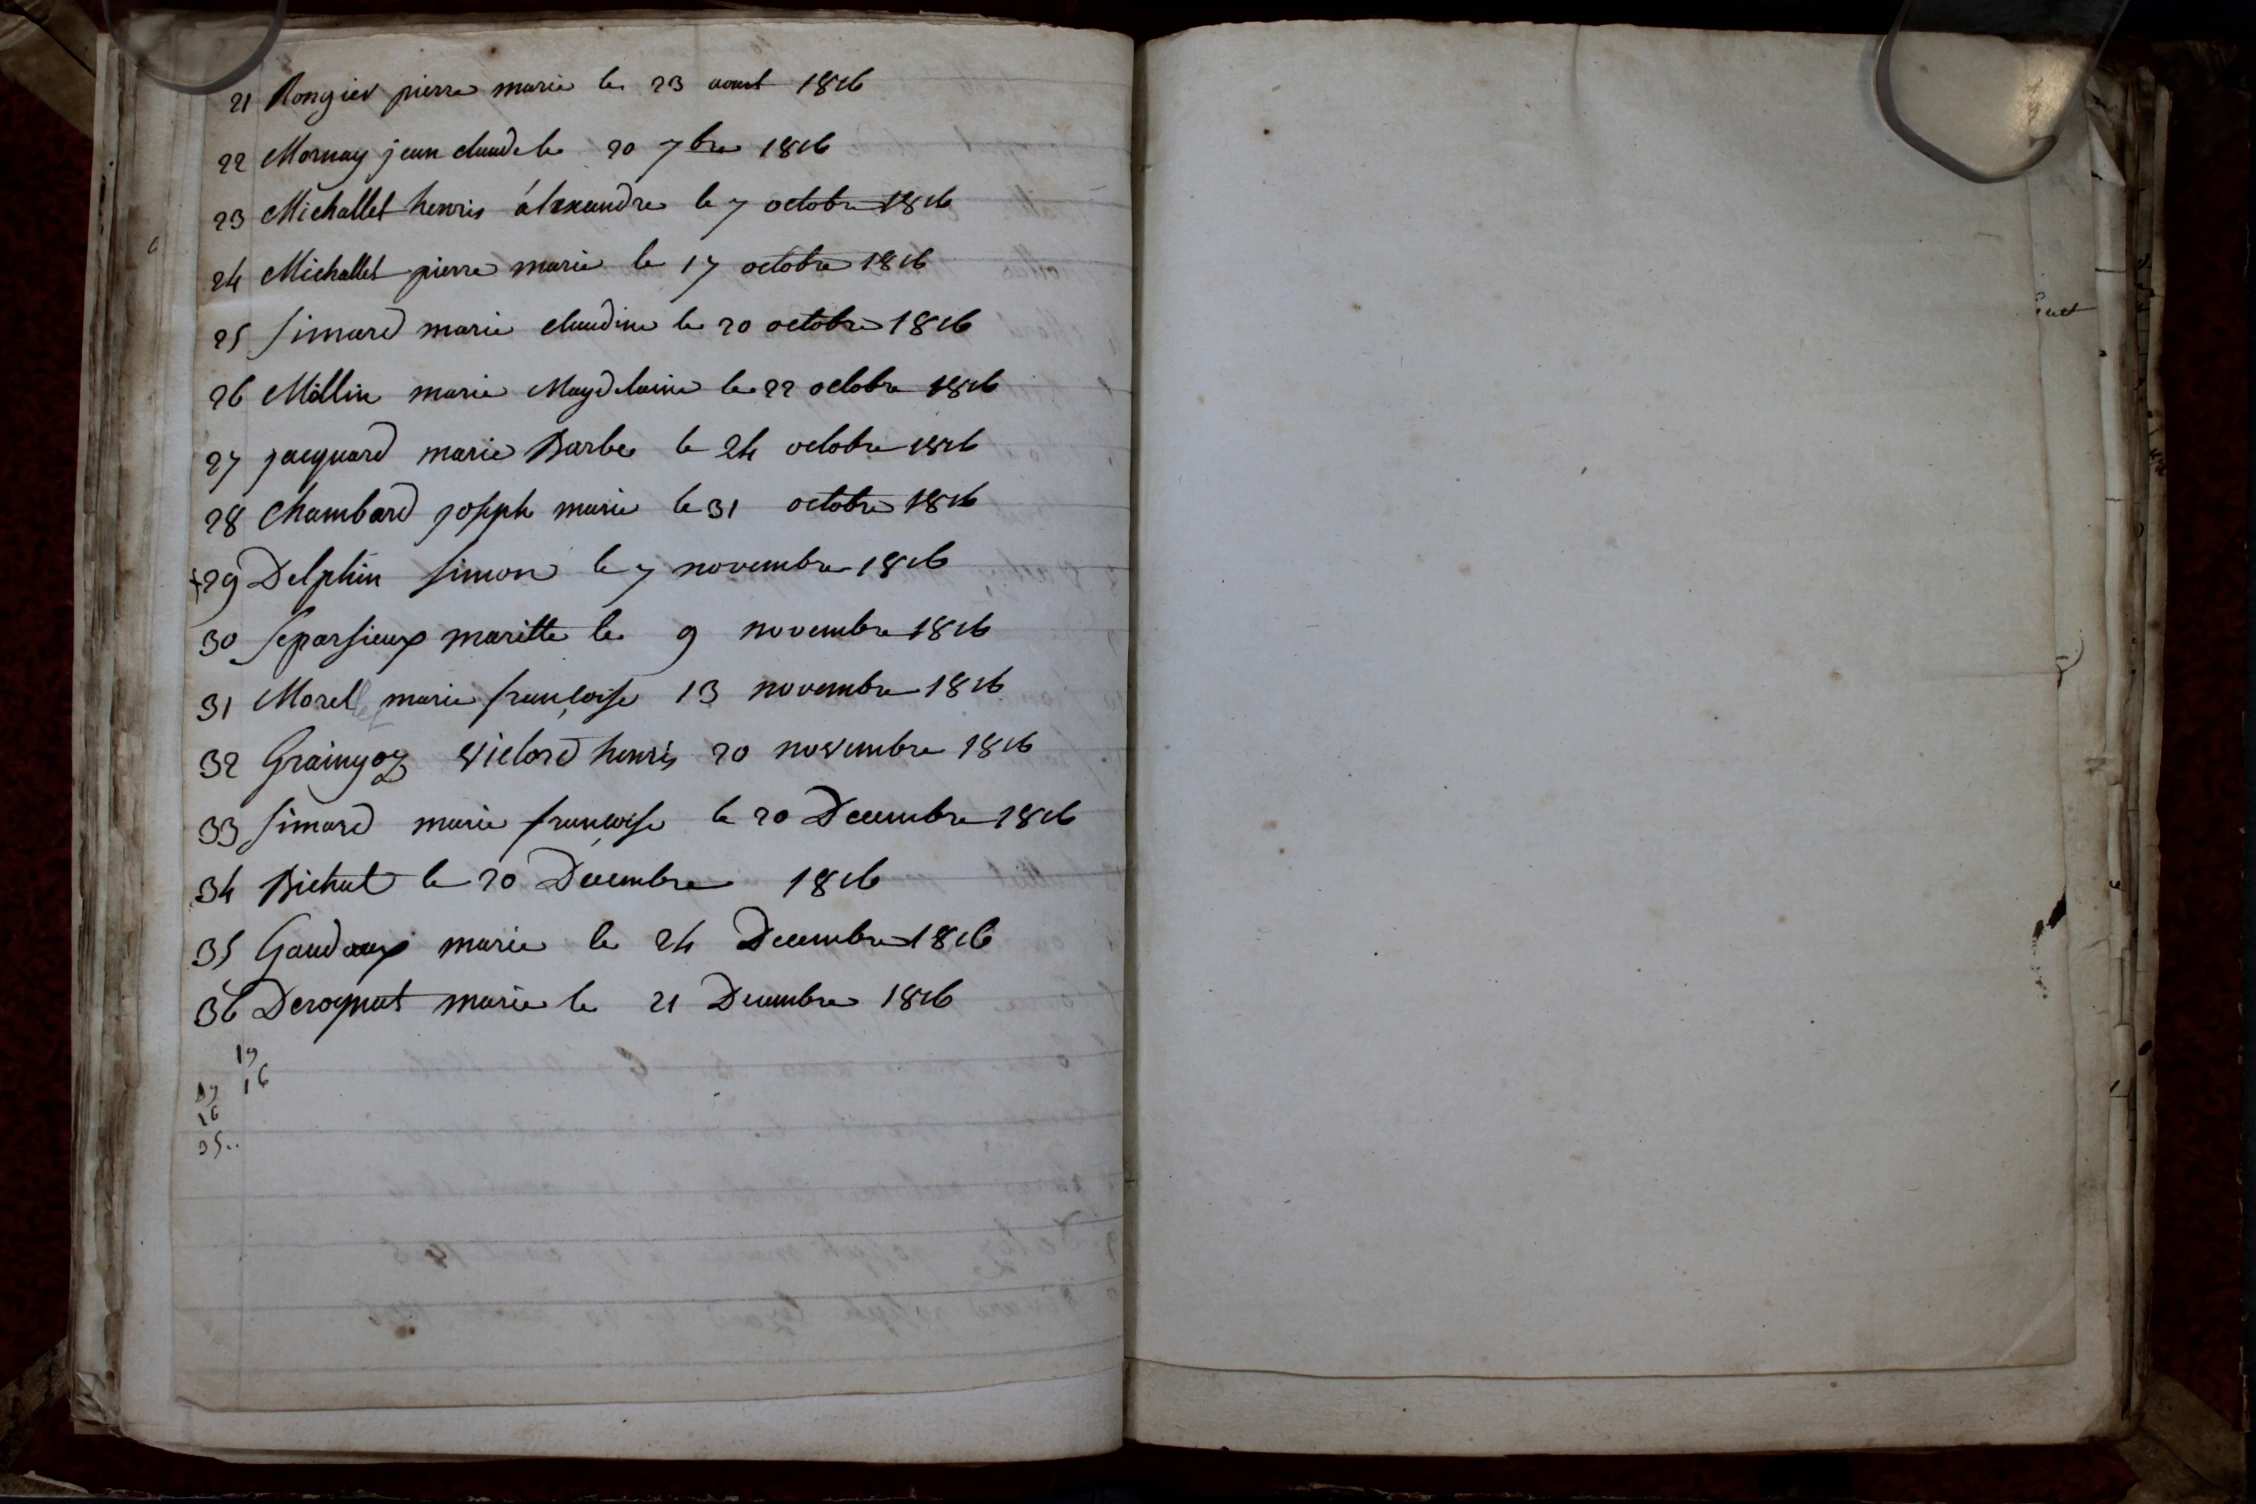 21 Rongier pierre marie le 23 aoust 1816
22 Mornay jean claude le 20 7bre 1816
23 Michallet henris aléxandre le 7 octobre 1816
24 Michallet pierre marie le 17 octobre 1816
25 Simard marie claudine le 20 octobre 1816
26 Millin marie Magdelaine le 22 octobre 1816
27 jacquard marie Barbe le 24 octobre 1816
28 Chambard joseph marie le 31 octobre 1816
29 Delphin Simon le 7 novembre 1816
30 Separsieux mariette le 9 novembre 1816
31 Morellet marie françoise 13 novembre 1816
32 Graingoz victord henris 20 novembre 1816
33 Simard marie françoise le 20 Decembre 1816
34 Bichat le 20 Decembre 1816
35 Gaudaux marie le 24 Decembre 1816
36 marie le 21 Decembre 1816
19
16
19
16
35